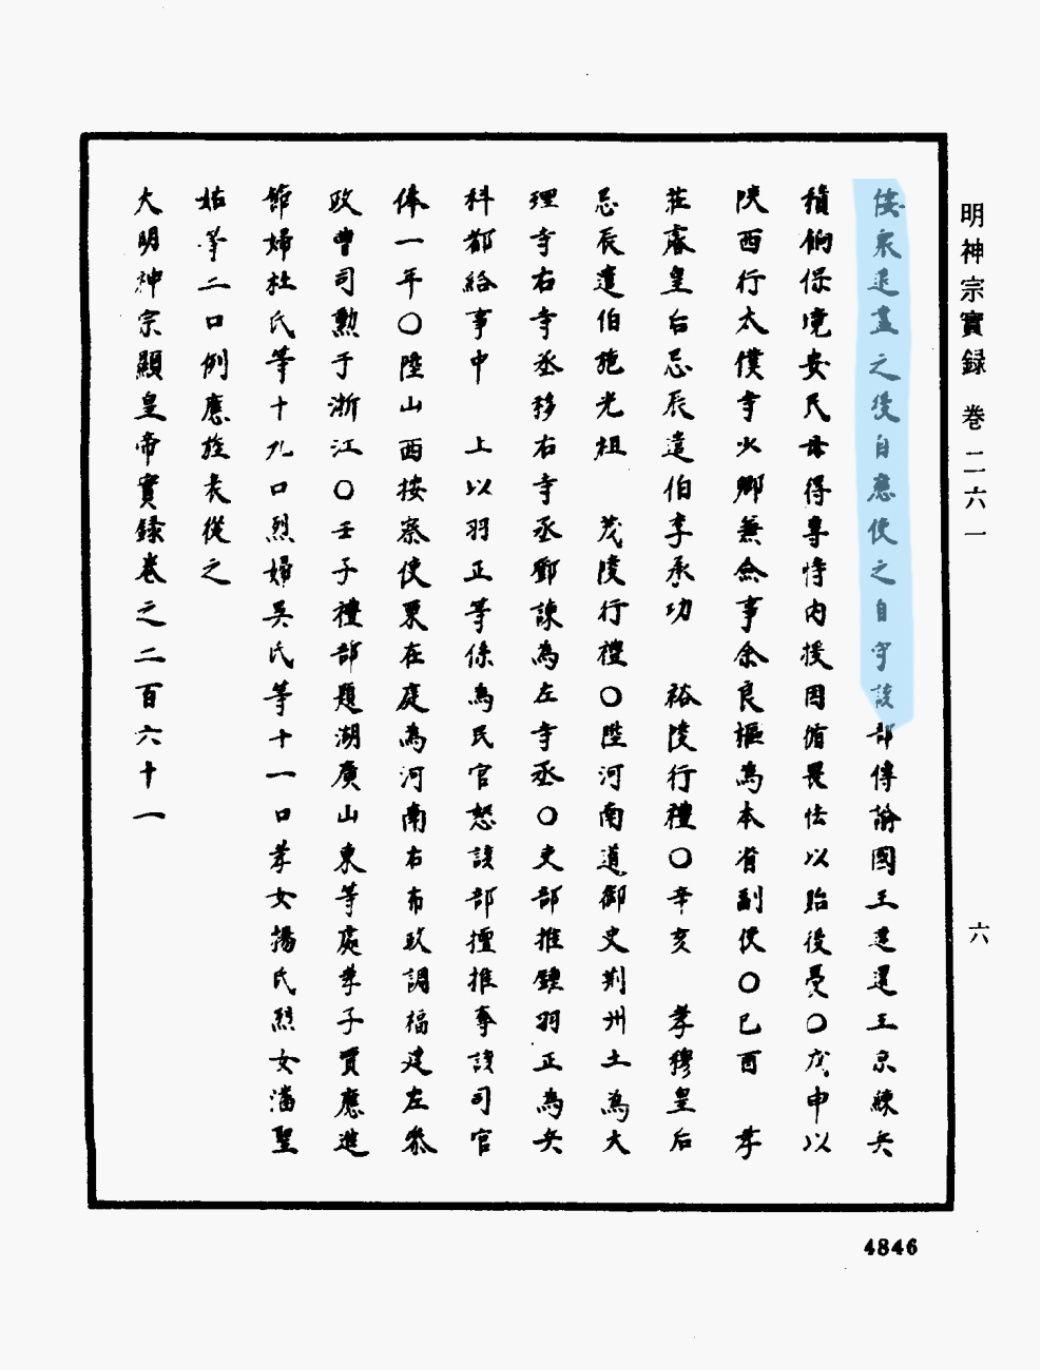 明神宗實録 卷二六一 六
倭衆退盡之後自應使之自守該部傳諭國王逹還王京練兵
積餉保境安民毋得專恃内援因循畏怯以貽後憂〇戊申以
陝西行太僕寺少卿兼僉事余良樞為本省副使〇己酉 孝
莊睿皇后忌辰遣伯李承功 裕陵行禮〇辛亥 孝穆皇后
忌辰遣伯施光祖 茂陵行禮〇陞河南道御史荆州土為大
理寺右寺丞移右寺丞鄧諫為左寺丞〇吏部推鍾羽正為兵
科都給事中 上以羽正等係為民官怒該部擅推奪該司官
俸一年〇陞山西按察使栗在庭為河南右布政調福建左叅
政曹司勲于浙江〇壬子禮部題湖廣山東等處孝子賈應進
節婦杜氏等十九口烈婦吴氏等十一口孝女楊氏烈女潘聖
姑等二口例應旌表從之
大明神宗顯皇帝實録卷之二百六十一
4846